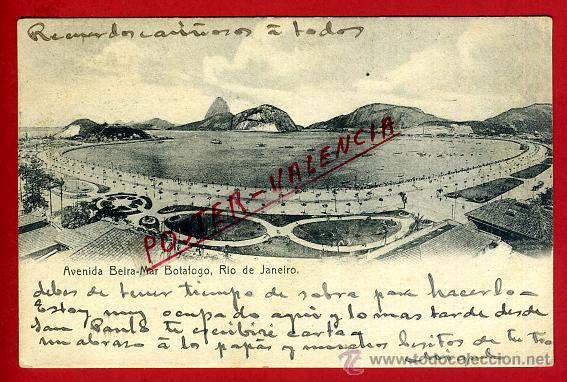 Recuerdos cariñosos á todos
POSTER-VALENCIA
Avenida Beira-Mar Botafogo, Rio de Janeiro.
debes de tener tiempo de sobra para hacerlo-
Estoy muy ocupado aquí y lo mas tarde desde
San Paulo te escribiré carta-
un abrazo á los papás y muchos besitos de tu tio
todocoleccion.net